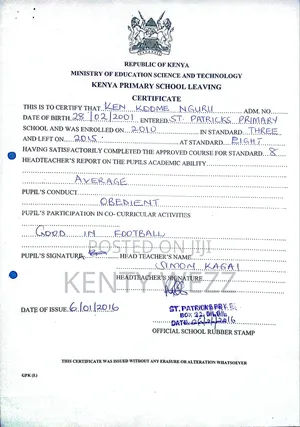 REPUBLIC OF KENYA
MINISTRY OF EDUCATION SCIENCE AND TECHNOLOGY
KENYA PRIMARY SCHOOL LEAVING
CERTIFICATE
THIS IS TO CERTIFY THAT KEN KOOME NGURU ADM. NO.
DATE OF BIRTH 28/02/2001 ENTERED ST. PATRICKS PRIMARY
SCHOOL AND WAS ENROLLED ON 2010 IN STANDARD THREE
AND LEFT ON 2015 AT STANDARD EIGHT
HAVING SATISFACTORILY COMPLETED THE APPROVED COURSE FOR STANDARD 8
HEADTEACHER'S REPORT ON THE PUPILS ACADEMIC ABILITY
AVERAGE
PUPIL'S CONDUCT
OBEDIENT
PUPIL'S PARTICIPATION IN CO- CURRICULAR ACTIVITIES
GOOD IN FOOTBALL
POSTED ON JIJI
PUPIL'S SIGNATURE HEAD TEACHER'S NAME
SIMON KAGAI
KENTY WEZZ
HEADTEACHER'S SIGNATURE
DATE OF ISSUE 6/01/2016
ST. PATRICKS
BOX 22,
DATE
OFFICIAL SCHOOL RUBBER STAMP
THIS CERTIFICATE WAS ISSUED WITHOUT ANY ERASURE OR ALTERATION WHATSOEVER
GPK (L)